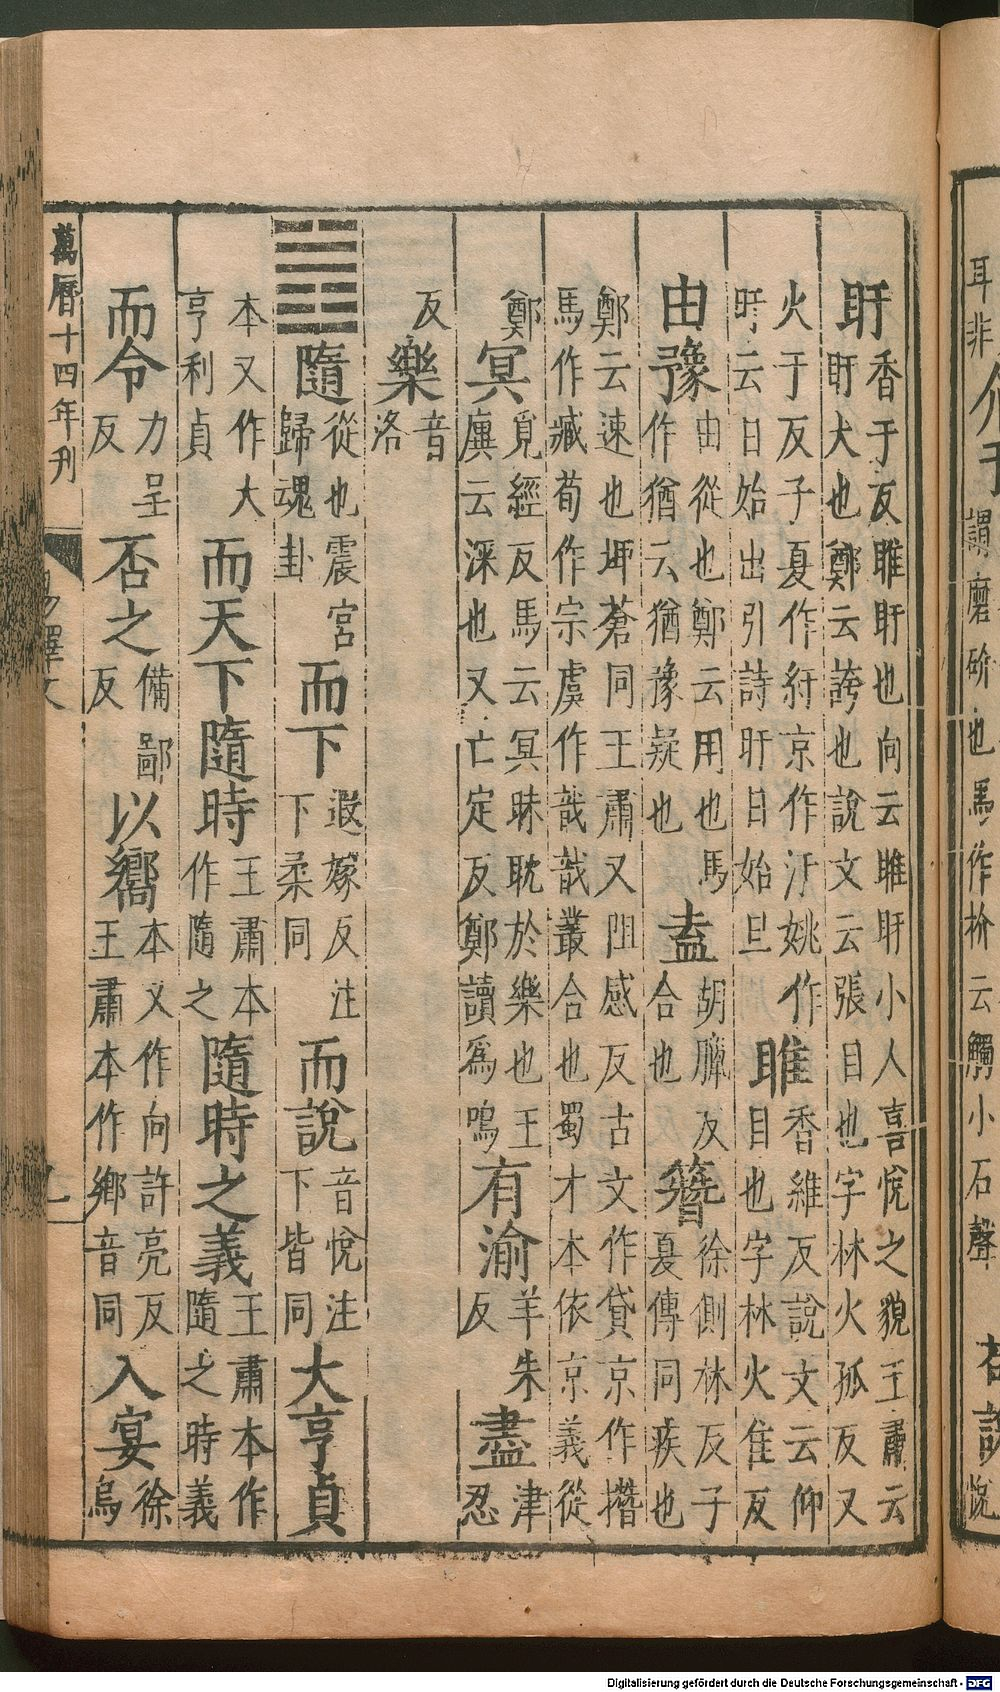 耳非介于謂磨砎也馬作扴云觸小石聲
盱香于反睢盱也向云睢盱小人喜悅之貌王肅云盱犬也鄭云誇也說文云張目也字林火孤反又
火于反子夏作紆京作汙姚作旴云日始出引詩旴日始旦睢香維反說文云仰目也字林火隹反
由豫由從也鄭云用也馬作猶云猶豫疑也盍胡臘反合也簪徐側林反子夏傳同疾也
鄭云速也埤蒼同王肅又阻感反古文作貸京作撍馬作臧荀作宗虞作哉哉叢合也蜀才本依京義從
鄭冥覓經反馬云冥昧耽於樂也王廙云深也又亡定反鄭讀爲鳴有渝羊朱反盡津忍
反樂音洛
隨從也震宮歸魂卦而下遐嫁反注下柔同而說音悅注下皆同大亨貞
本又作大亨利貞而天下隨時王肅本作隨之隨時之義王肅本作隨之時義
而令力呈反否之備鄙反以嚮本又作向許亮反王肅本作鄉音同入宴徐烏
萬曆十四年刊
Digitalisierung gefördert durch die Deutsche Forschungsgemeinschaft - DFG